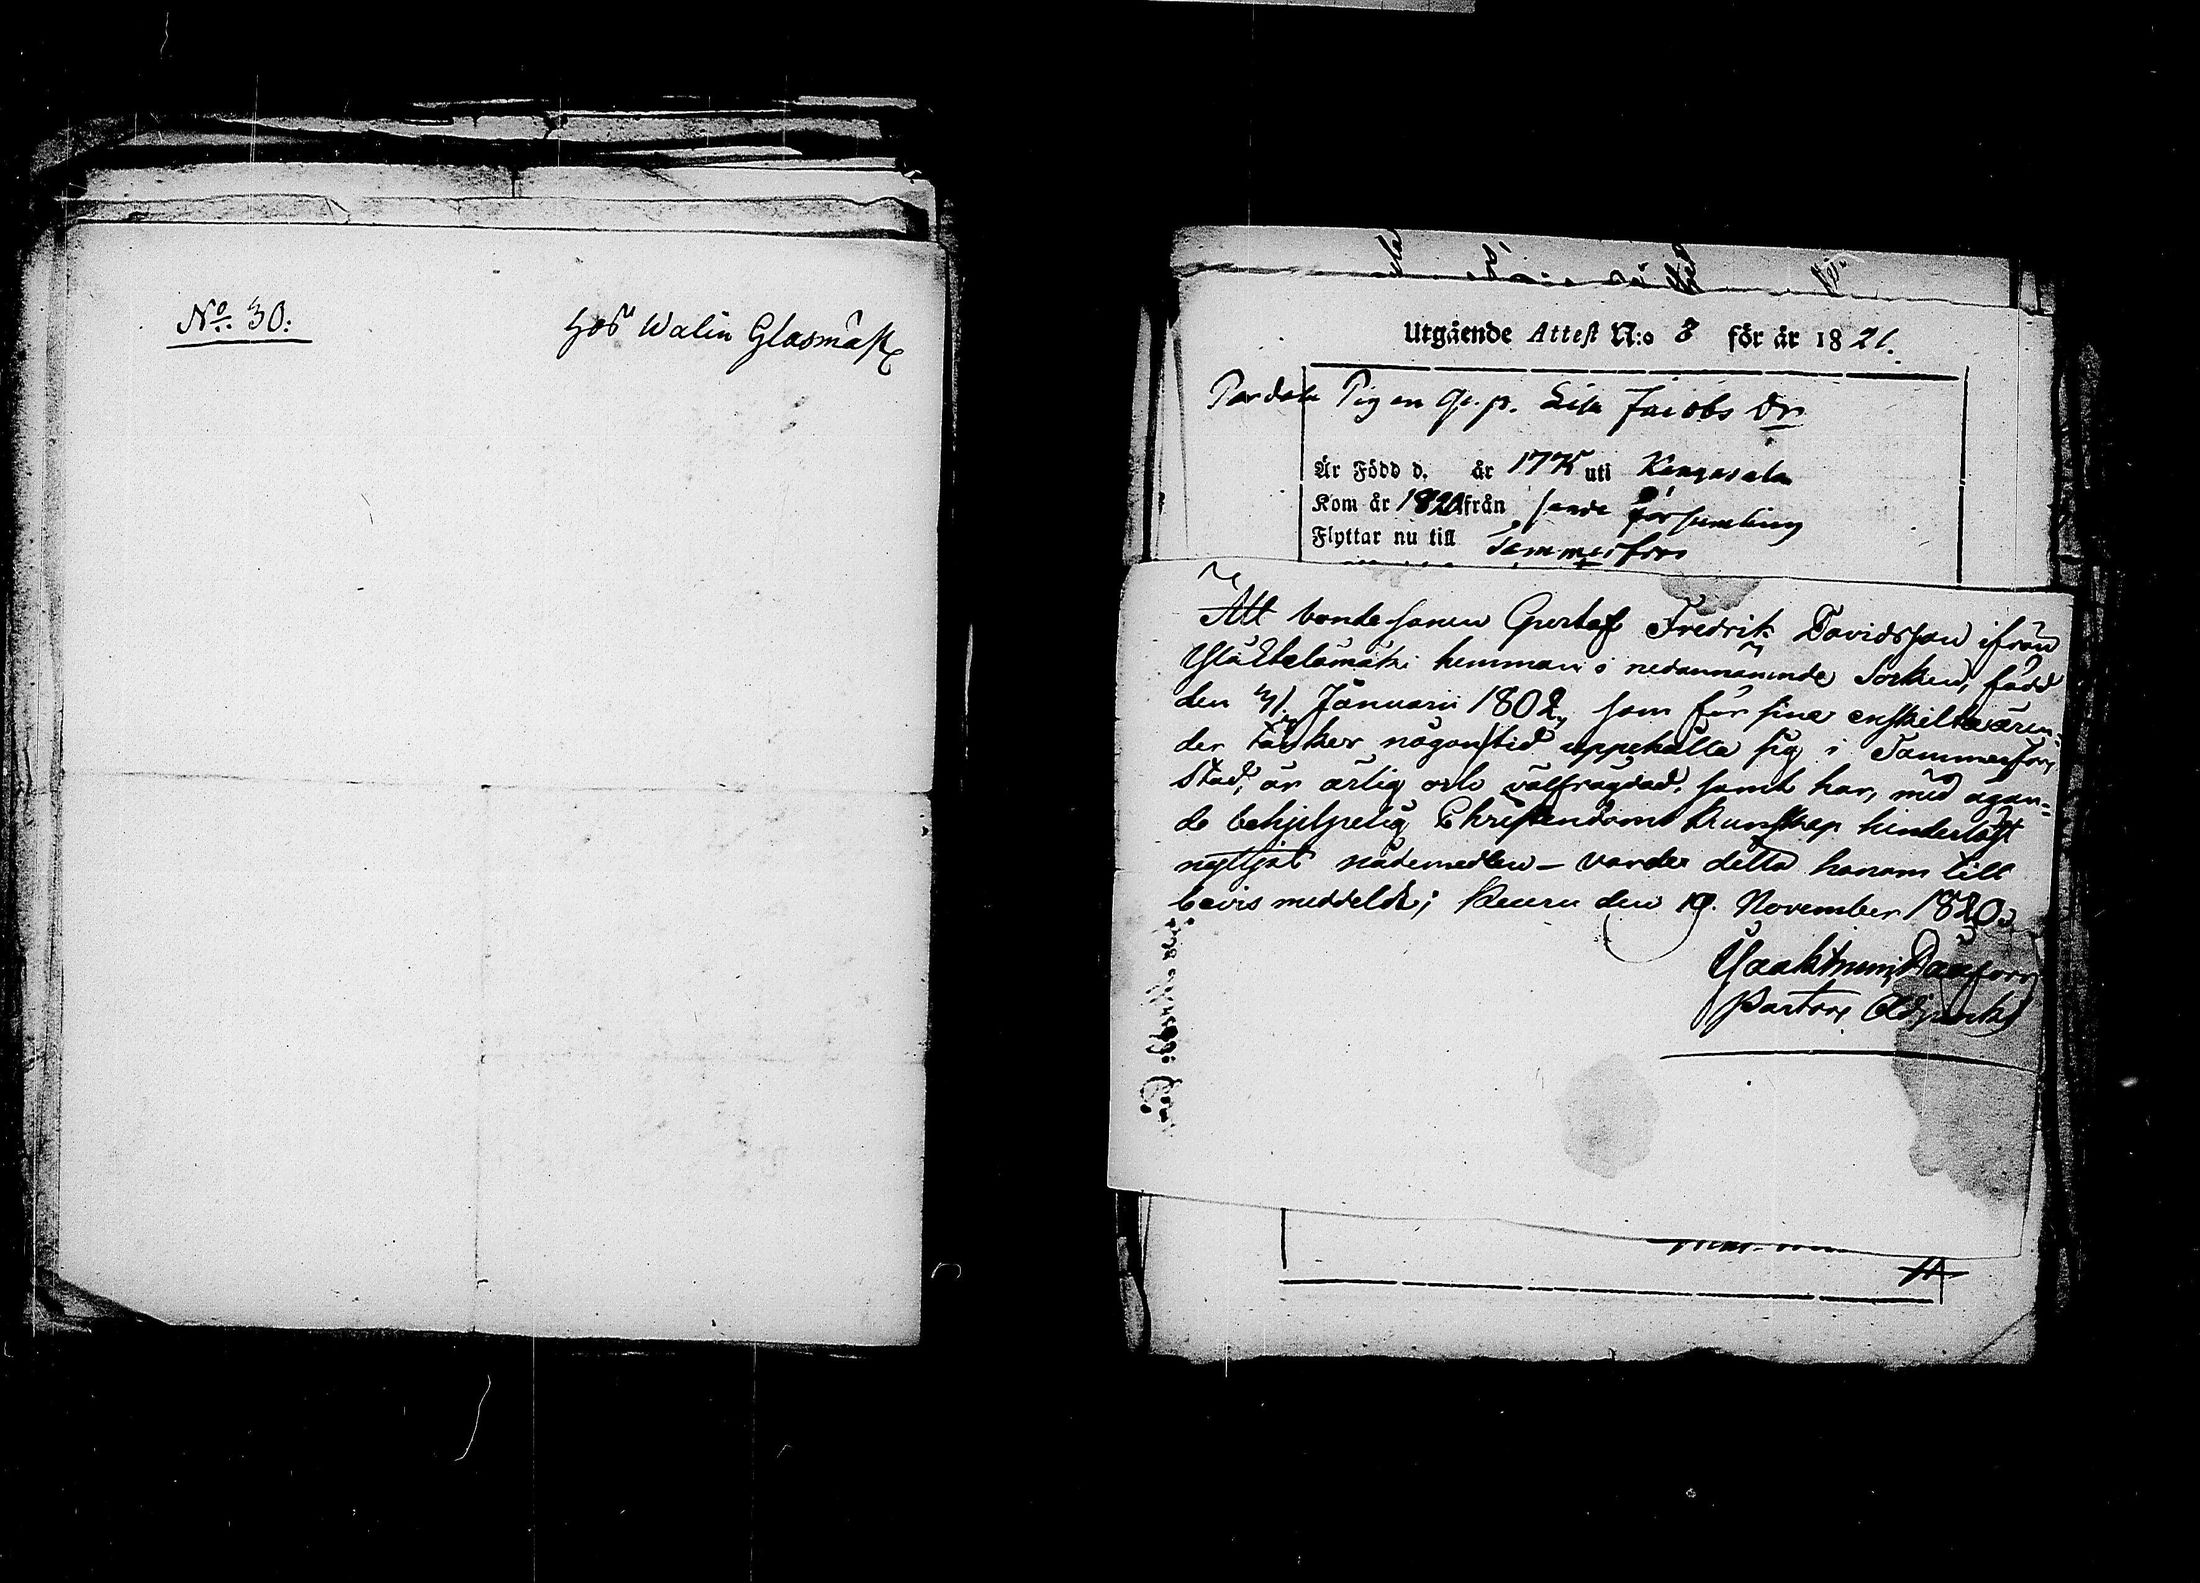 No. 30.
hos Walin Glasmäst
Utgående Attest N:o 8 för år 1821.
Pigan Lisa Jacobs Dr
Är Född d. år 1775 uti Kangasala
Kom år 1820 från sanda Församling
Flyttar nu till Tammerfors
Att bondesonen Gustaf Fredrik Davidsson ifrån
hemman i nedannämnde Socken, född
den 31. Januarii 1802, som för sina enskilta ären-
der täncker någon tid uppehålla sig i Tammerfors
Stad, är ärlig och välfrägdad, samt har, med ägan-
de behjelpelig Christendoms kunskap hinderlöst
nyttjat nådemedlen – varder detta honom till
bevis meddeldt; Keuru den 19. November 1820.
Pastors Adjunct